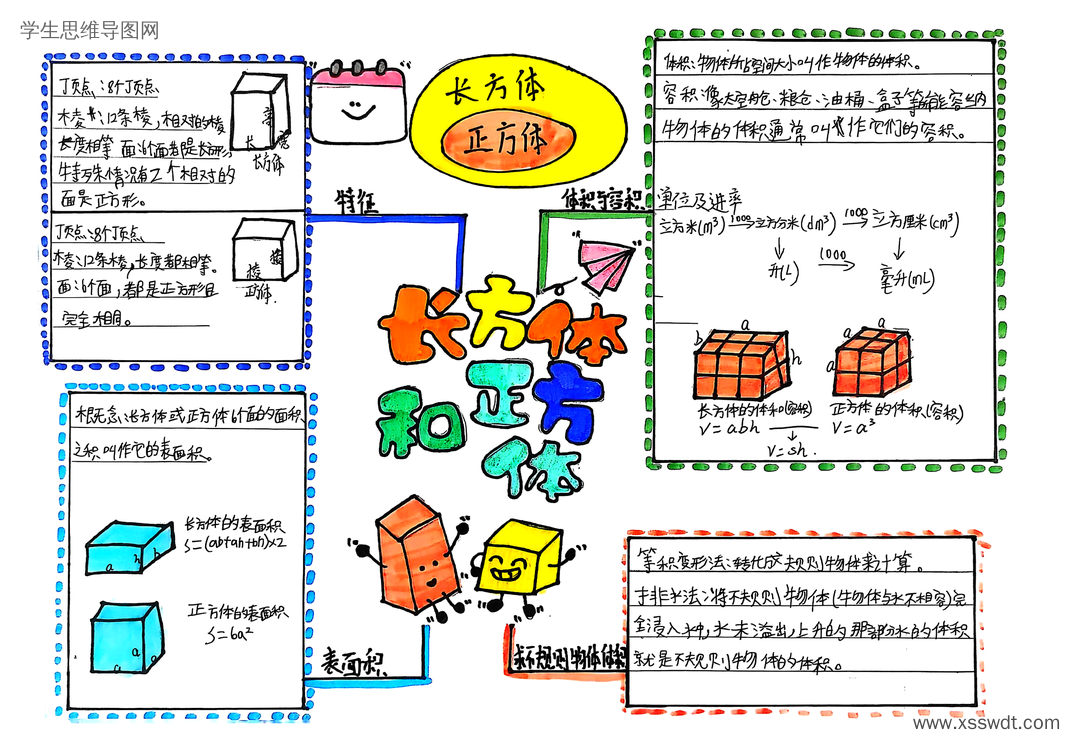 学生思维导图网
顶点:8个顶点
棱:12条棱,相对的棱
长度相等 面:6个面都是长方形,
特殊情况有2个相对的
面是正方形。
棱
长
宽
长方体
顶点:8个顶点
棱:12条棱,长度都相等。
面:6个面,都是正方形且
完全相同。
棱
棱
正方体.
长方体
正方体
特征
体积与容积
体积:物体所占空间大小叫作物体的体积。
容积:像太空舱、粮仓、油桶、盒子等能容纳
物体的体积通常叫作它们的容积。
单位及进率
立方米(m³) 1000 立方分米(dm³) 1000 立方厘米(cm³)
升(L) 1000 毫升(mL)
a
b
h
长方体的体积(容积)
V=abh
V=sh.
a
a
a
正方体的体积(容积)
V=a³
长方体
和正方
体
概念:长方体或正方体6个面的面积
之积叫作它的表面积。
a
h
b
长方体的表面积
S=(ab+ah+bh)×2
a
a
a
正方体的表面积
S=6a²
表面积
求不规则物体体积
等积变形法:转化成规则物体来计算。
排水法:将不规则物体(物体与水不相容)完
全浸入水中,水未溢出,上升的那部分水的体积
就是不规则物体的体积。
www.xsswdt.com